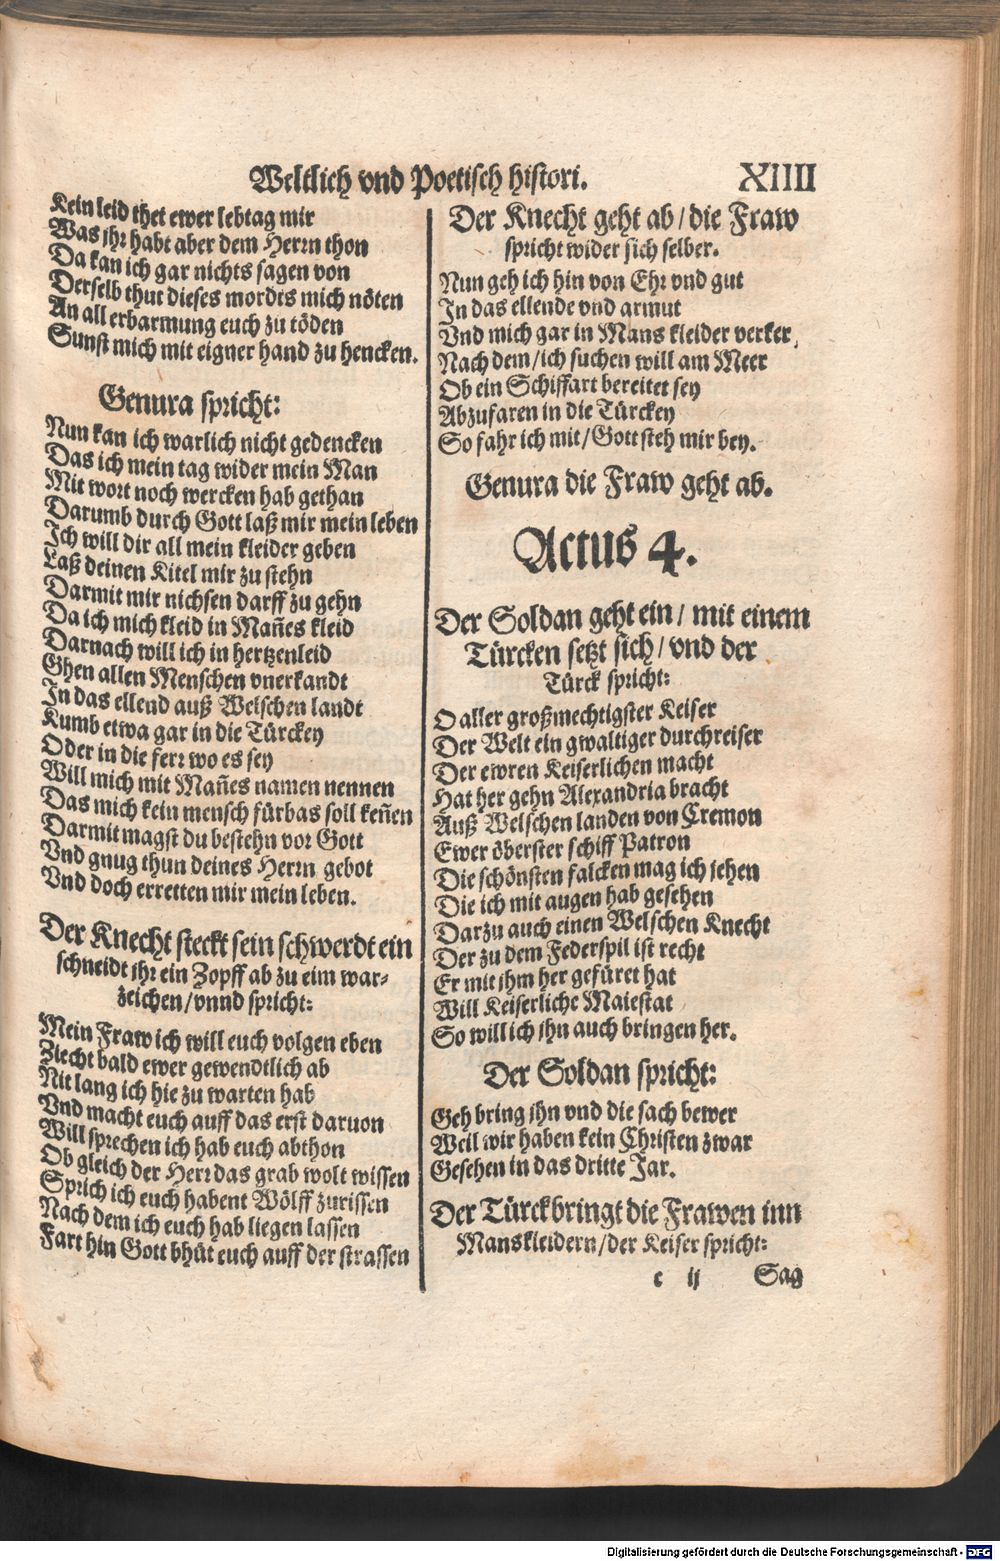 Weltlich vnd Poetisch histori. XIIII
Kein leid thet ewer lebtag mir
Was jhr habt aber dem Herrn thon
Da kan ich gar nichts sagen von
Derselb thut dieses mordts mich nöten
An all erbarmung euch zu töden
Sunst mich mit eigner hand zu hencken.
Genura spricht:
Nun kan ich warlich nicht gedencken
Das ich mein tag wider mein Man
Mit wort noch wercken hab gethan
Darumb durch Gott laß mir mein leben
Ich will dir all mein kleider geben
Laß deinen Kitel mir zu stehn
Darmit mir nichsen darff zu gehn
Da ich mich kleid in Mañes kleid
Darnach will ich in hertzenleid
Ghen allen Menschen vnerkandt
In das ellend auß Welschen landt
Kumb etwa gar in die Türckey
Oder in die ferr wo es sey
Will mich mit Mañes namen nennen
Das mich kein mensch fürbas soll keñen
Darmit magst du bestehn vor Gott
Vnd gnug thun deines Herrn gebot
Vnd doch erretten mir mein leben.
Der Knecht steckt sein schwerdt ein
schneidt jhr ein Zopff ab zu eim war-
zeichen/vnnd spricht:
Mein Fraw ich will euch volgen eben
Ziecht bald ewer gewendtlich ab
Nit lang ich hie zu warten hab
Vnd macht euch auff das erst daruon
Will sprechen ich hab euch abthon
Ob gleich der Herr das grab wolt wissen
Sprich ich euch habent Wölff zurissen
Nach dem ich euch hab liegen lassen
Fart hin Gott bhüt euch auff der strassen
Der Knecht geht ab/die Fraw
spricht wider sich selber.
Nun geh ich hin von Ehr vnd gut
In das ellende vnd armut
Vnd mich gar in Mans kleider verker,
Nach dem/ich suchen will am Meer
Ob ein Schiffart bereitet sey
Abzufaren in die Türckey
So fahr ich mit/Gott steh mir bey.
Genura die Fraw geht ab.
Actus 4.
Der Soldan geht ein/mit einem
Türcken setzt sich/vnd der
Türck spricht:
O aller großmechtigster Keiser
Der Welt ein gwaltiger durchreiser
Der ewren Keiserlichen macht
Hat her gehn Alexandria bracht
Auß Welschen landen von Cremon
Ewer öberster schiff Patron
Die schönsten falcken mag ich jehen
Die ich mit augen hab gesehen
Darzu auch einen Welschen Knecht
Der zu dem Federspil ist recht
Er mit jhm her gefüret hat
Will Keiserliche Maiestat
So will ich jhn auch bringen her.
Der Soldan spricht:
Geh bring jhn vnd die sach bewer
Weil wir haben kein Christen zwar
Gesehen in das dritte Jar.
Der Türck bringt die Frawen inn
Manskleidern/der Keiser spricht:
c ij Sag
Digitalisierung gefördert durch die Deutsche Forschungsgemeinschaft - DFG